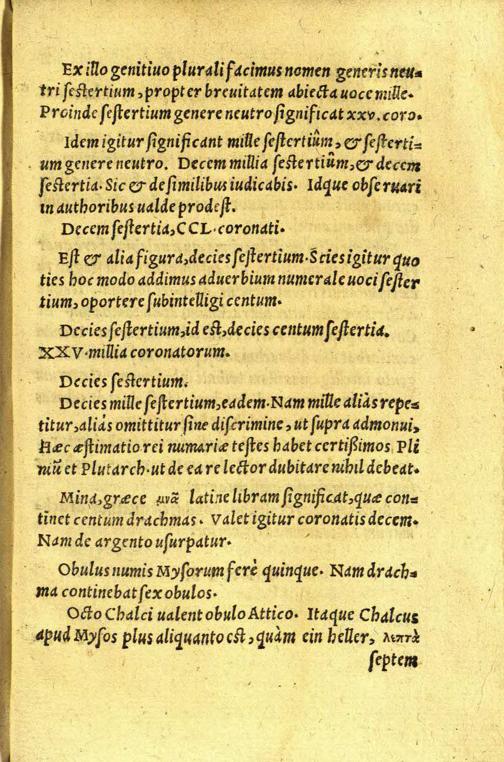 Ex illo genitiuo plurali facimus nomen generis neu-
tri sestertium, propter breuitatem abiecta uoce mille.
Proinde sestertium genere neutro significat xxv. coro.
Idem igitur significant mille sestertiûm, & sesterti-
um genere neutro. Decem millia sestertiûm, & decem
sestertia. Sic & de similibus iudicabis. Idque obseruari
in authoribus ualde prodest.
Decem sestertia, CCL. coronati.
Est & alia figura, decies sestertium. Scies igitur quo
ties hoc modo addimus aduerbium numerale uoci sester
tium, oportere subintelligi centum.
Decies sestertium, id est, decies centum sestertia.
XXV. millia coronatorum.
Decies sestertium.
Decies mille sestertium, eadem. Nam mille aliàs repe-
titur, aliàs omittitur sine discrimine, ut supra admonui,
Hæc æstimatio rei numariæ testes habet certißimos, Pli
niũ et Plutarch. ut de ea re lector dubitare nihil debeat.
Mina, græce μνᾶ latine libram significat, quæ con-
tinet centum drachmas. Valet igitur coronatis decem.
Nam de argento usurpatur.
Obulus numis Mysorum ferè quinque. Nam drach-
ma continebat sex obulos.
Octo Chalci ualent obulo Attico. Itaque Chalcus
apud Mysos plus aliquanto est, quàm ein heller, λεπτὰ
septem